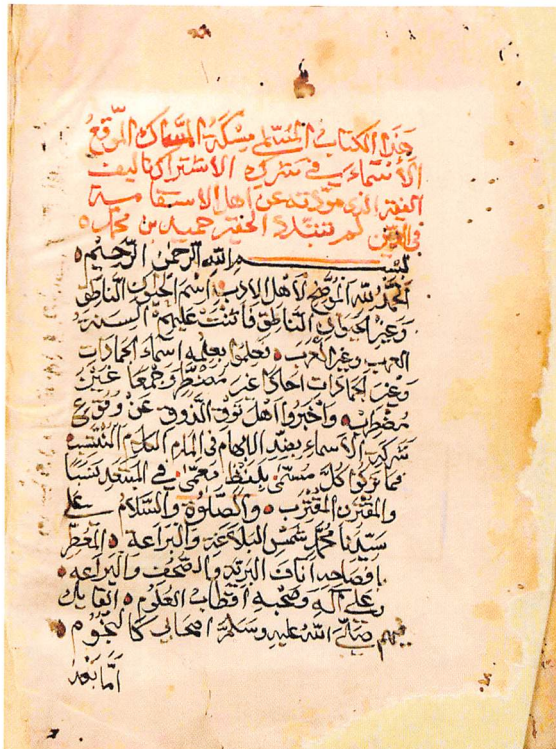 هذا الكتاب المسمى مسكة المساك الموقع
الأسماء في شرك الاشتراك تاليف
الفقير الذي مودته عن اهل الاستقامة
في الدين لم تتبدد الحقير حميد بن محمد
بسم الله الرحمن الرحيم
الحمد لله الموضح لأهل الادب اسم الحيوان الناطق
وغير الحيوان الناطق فاثنت عليهم السنة
العرب وغير العرب تعلموا بعلمه اسماء الجمادات
وغير الجمادات احادا غير وجمعا غير
مضطرب واخبروا اهل توق الذوق عن وقوع
شركة الأسماء الابهام في
فما تركوا كل مسمى بلفظ في نسبا
والمقترن المقترب والصلوة والسلام على
سيدنا محمد شمس البلاغة والبراعة
وال والبراعة
وعلى آله وصحبه اقطاب العلوم القايل
فيهم صلى الله عليه وسلم اصحابي كالنجوم
اما بعد